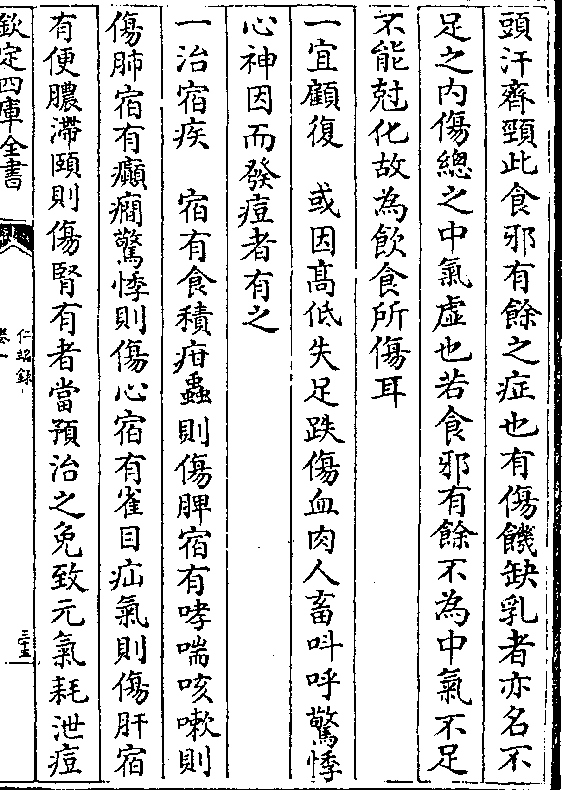 頭汗齊頸此食邪有餘之症也有傷饑缺乳者亦名不
足之内傷總之中氣虛也若食邪有餘不為中氣不足
不能尅化故為飲食所傷耳
一宜顧復　或因髙低失足跌傷血肉人畜呌呼驚悸
心神因而發痘者有之
一治宿疾　宿有食積疳蟲則傷脾宿有哮喘咳嗽則
傷肺宿有癲癇驚悸則傷心宿有雀目疝氣則傷肝宿
有便膿滯頤則傷腎有者當預治之免致元氣耗泄痘
欽定四庫全書
仁端録
卷一
三十五